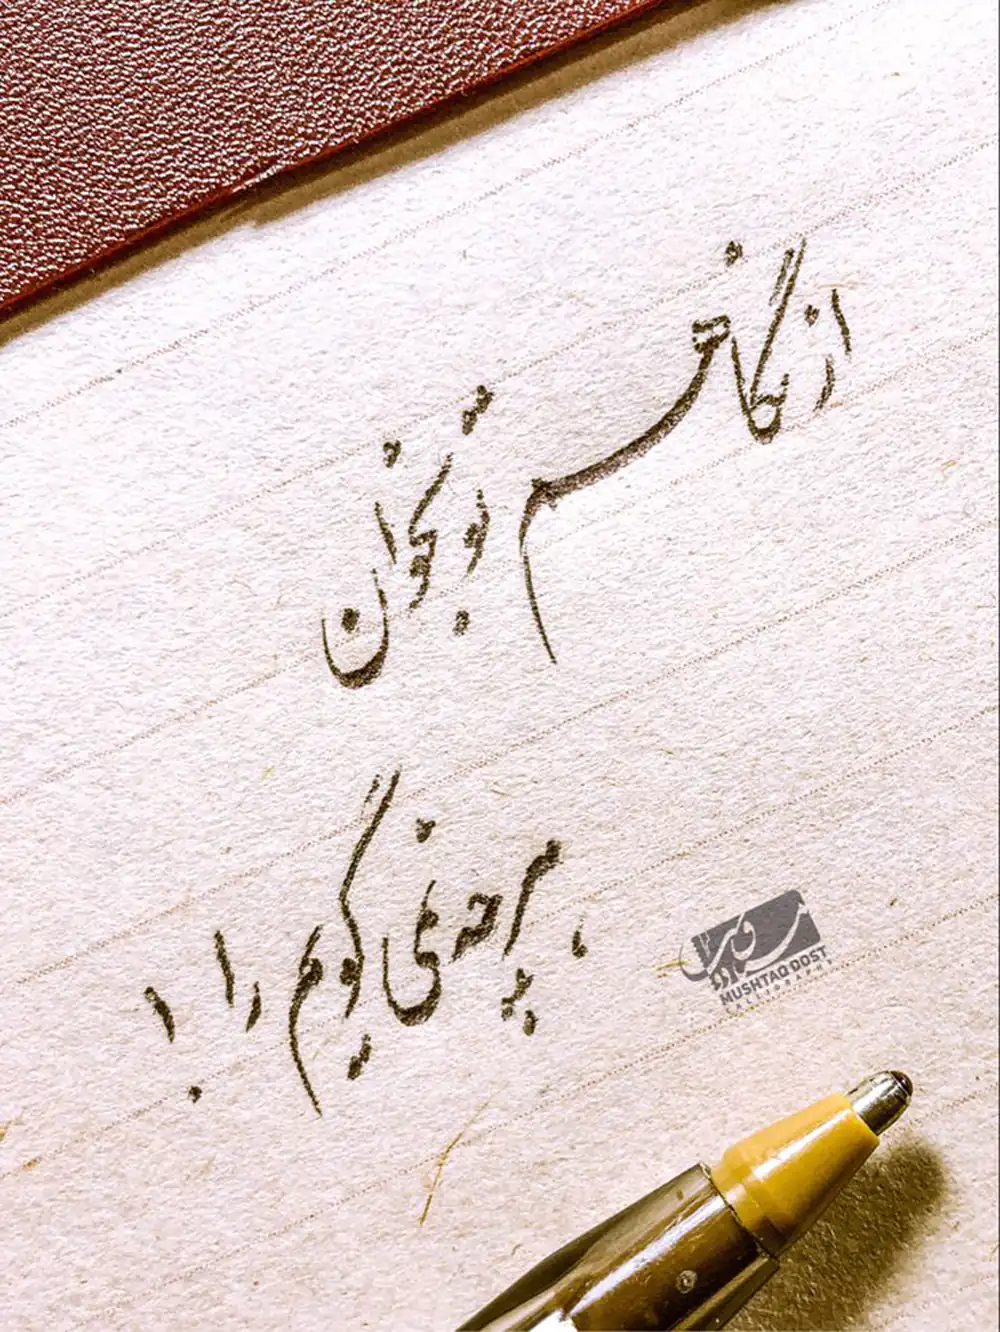 از نگاهم تو بخوان
هر چه نمی گویم را !
MUSHTAQ DOST
CALLIGRAPHY